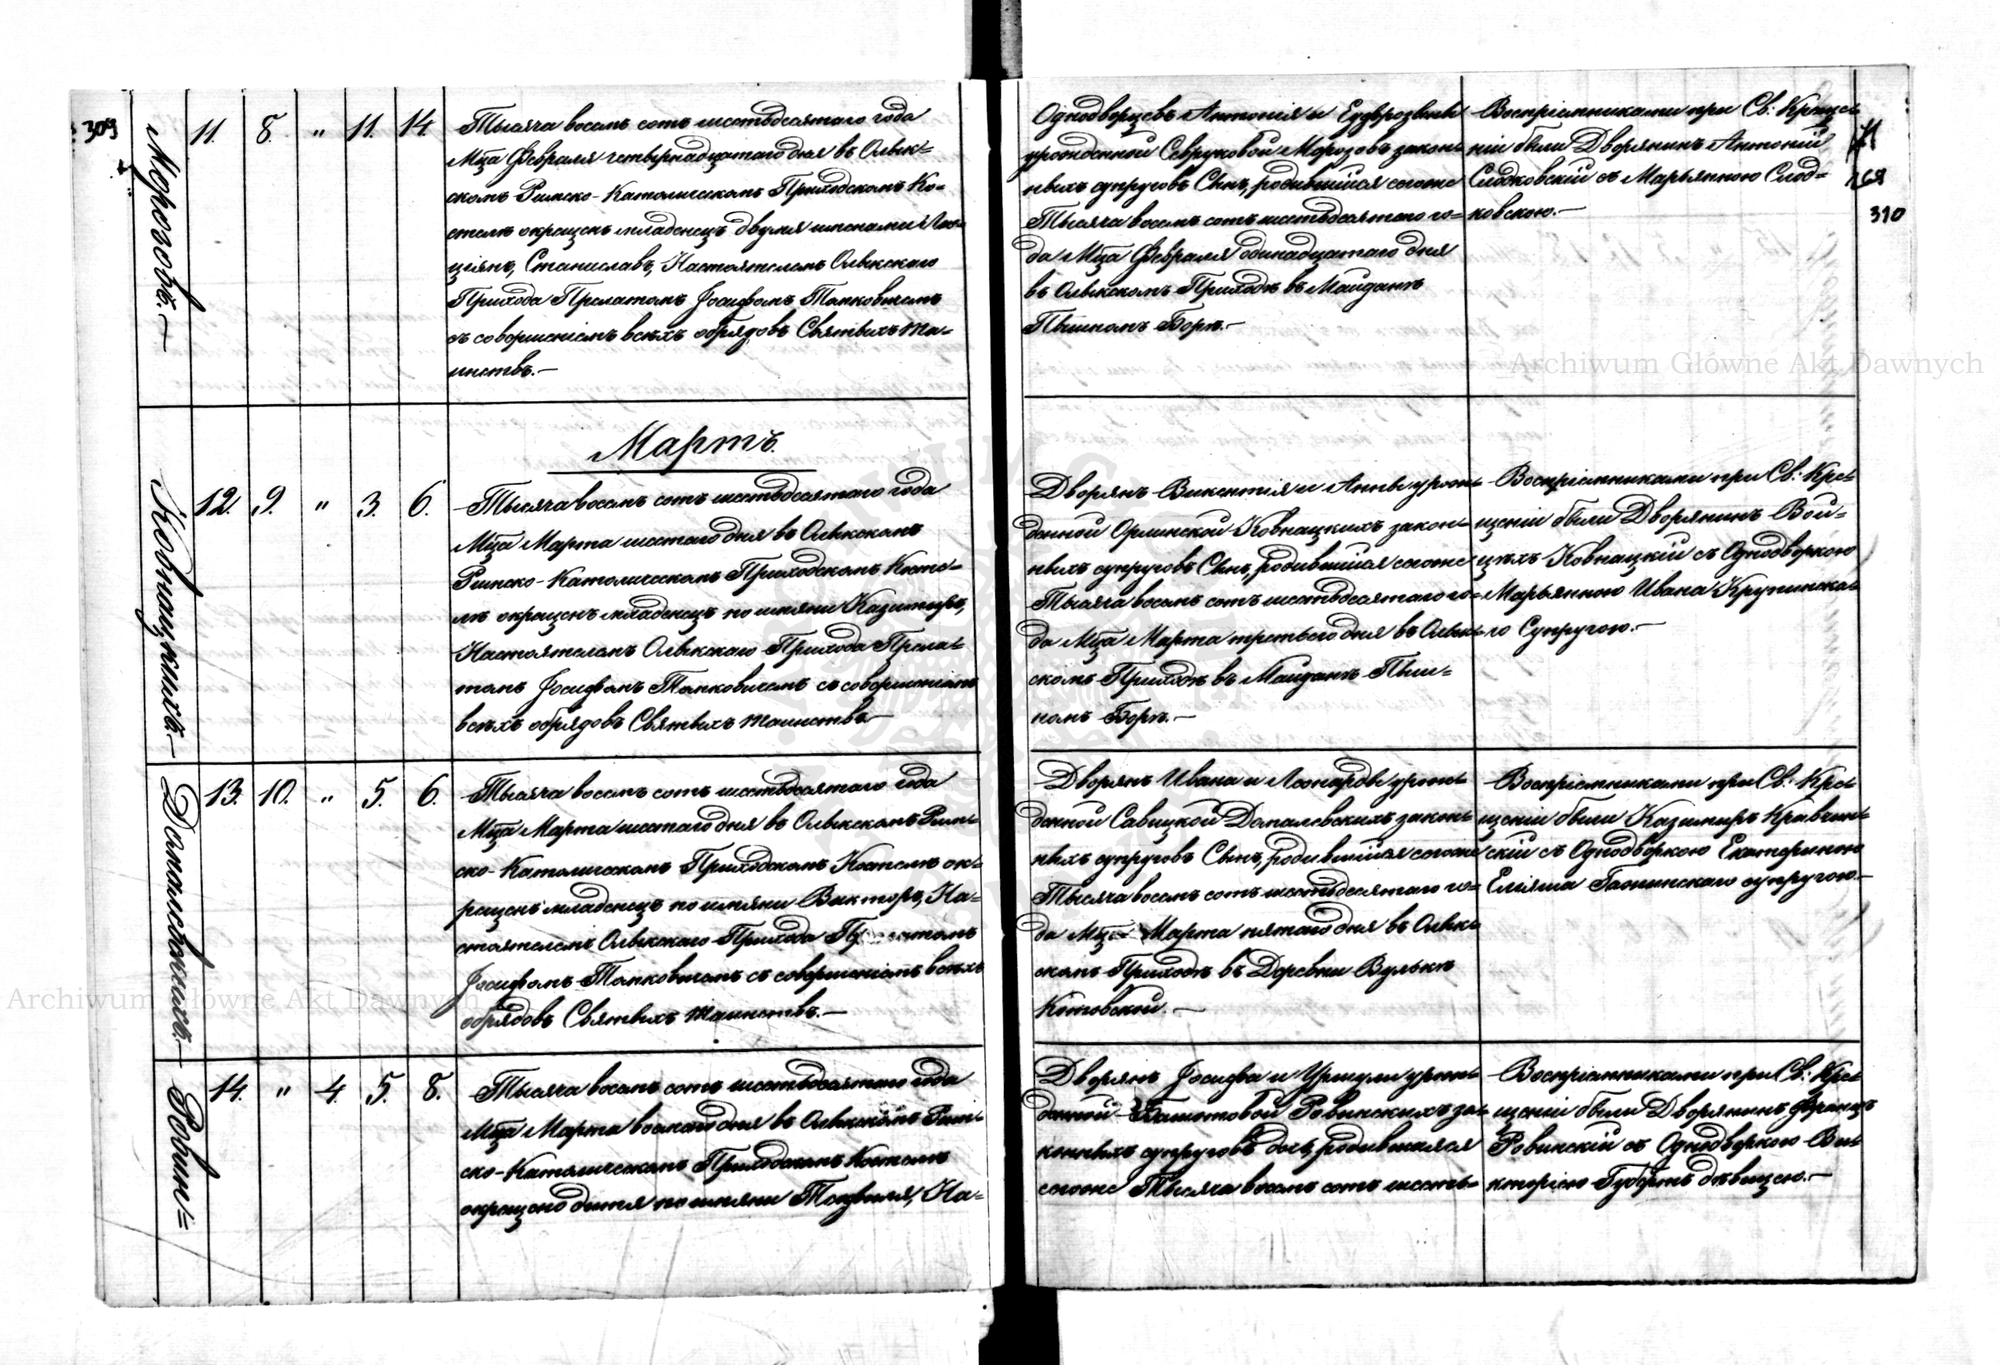 309
Морозовъ. —
11. 8. " 11. 14.
Тысяча восемь сотъ шестьдесятаго года
Мца Февраля четырнадцатаго дня въ Олык-
скомъ Римско-Католическомъ Приходскомъ Ко-
стелѣ окрещенъ младенецъ двумя именами Лю-
ціянъ, Станиславъ, Настоятелемъ Олыкскаго
Прихода Прелатомъ Іосифомъ
съ совершеніемъ всѣхъ обрядовъ Святыхъ та-
инствъ. —
Однодворцевъ Антонія и
урожденной Севруковой Морозовъ закон-
ныхъ супруговъ Сынъ, родившійся сего же
Тысяча восемь сотъ шестьдесятаго го-
да Мца Февраля одинадцатаго дня
въ Олыкскомъ Приходѣ въ Майданѣ
Пышномъ Борѣ. —
Воспріемниками при Св: Креще-
ніи были Дворянинъ Антоній
Слодковскій съ Марьянною Слод-
ковскою. —
168
310
Мартъ.
Ковнацкихъ. —
12. 9. " 3. 6.
Тысяча восемь сотъ шестьдесятаго года
Мца Марта шестаго дня въ Олыкскомъ
Римско-Католическомъ Приходскомъ Косте-
лѣ окрещенъ младенецъ по имяни Казимиръ,
Настоятелемъ Олыкскаго Прихода Прела-
томъ Іосифомъ съ совершеніемъ
всѣхъ обрядовъ Святыхъ таинствъ —
Дворянъ Викентія и Анны урож-
денной Орлинской Ковнацкихъ закон-
ныхъ супруговъ Сынъ, родившійся сего же
Тысяча восемь сотъ шестьдесятаго го-
да Мца Марта третьяго дня въ Олык-
скомъ Приходѣ въ Майданѣ Пыш-
номъ Борѣ. —
Воспріемниками при Св: Кре-
щеніи были Дворянинъ Вой-
цѣхъ Ковнацкій съ Однодворкою
Марьянною Ивана Крупинска-
го Супругою. —
13. 10. " 5. 6.
Тысяча восемь сотъ шестьдесятаго года
Мца Марта шестаго дня въ Олыкскомъ Рим-
ско-Католическомъ Приходскомъ Костелѣ ок-
рещенъ младенецъ по имяни Викторъ, На-
стоятелемъ Олыкскаго Прихода
Іосифомъ съ совершеніемъ всѣхъ
обрядовъ Святыхъ таинствъ. —
Дворянъ Ивана и Леонарды урож-
денной Савицкой закон-
ныхъ супруговъ Сынъ, родившійся сего же
Тысяча восемь сотъ шестьдесятаго го-
да Мца Марта пятаго дня въ Олык-
скомъ Приходѣ въ Деревни Вулькѣ
Котовской. —
Воспріемниками при Св: Кре-
щеніи были Казимиръ Кравчин-
скій съ Однодворкою Екатериною
супругою. —
Ровин=
14. " 4. 5. 8.
Тысяча восемь сотъ шестьдесятаго года
Мца Марта восмаго дня въ Олыкскомъ Рим-
ско-Католическомъ Приходскомъ Костелѣ
окрещено дитя по имяни Теофилія, На-
Дворянъ Іосифа и Уршули урож-
денной Ровинскихъ за-
конныхъ супруговъ дочь, родившаяся
сего же Тысяча восемь сотъ шесть-
Воспріемниками при Св: Кре-
щеніи были Дворянинъ Францъ
Ровинскій съ Однодворкою Ви-
кторіею Губертъ дѣвицею. —
Archiwum Główne Akt Dawnych
Archiwum Główne Akt Dawnych